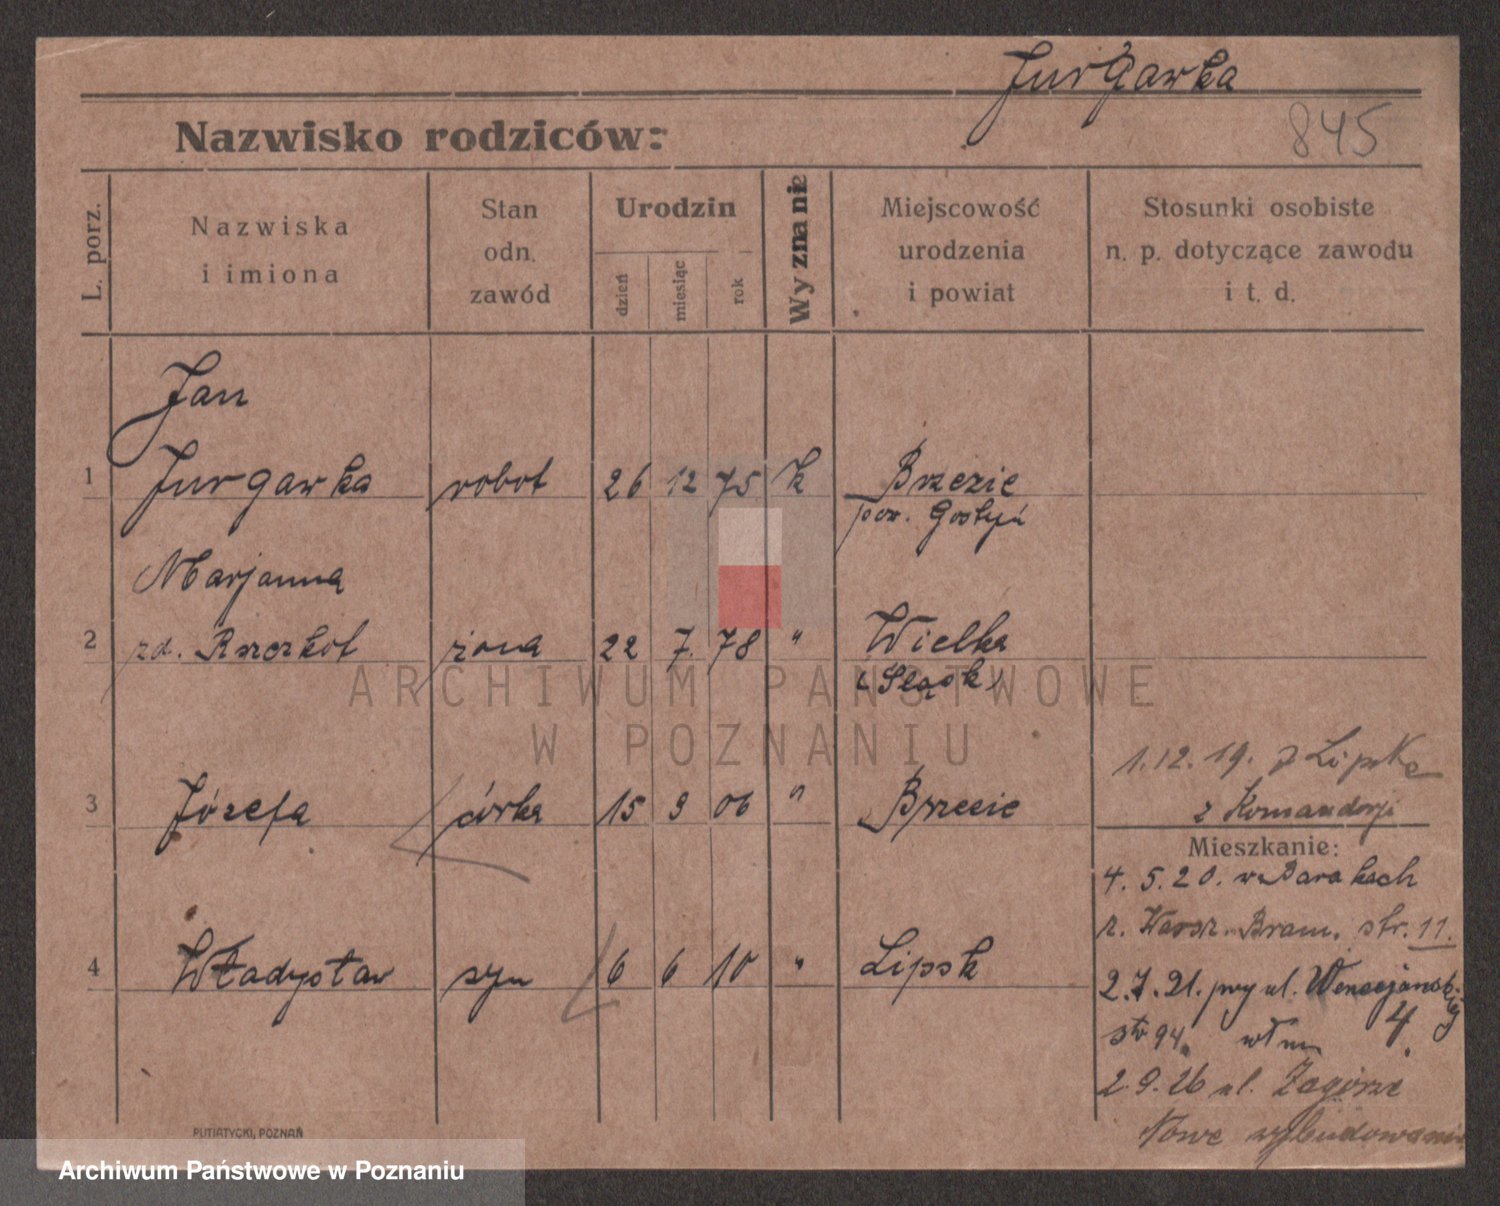 Jurgawka
Nazwisko rodziców:
845
L. porz.
Nazwiska
i imiona
Stan
odn.
zawód
Urodzin
dzień
miesiąc
rok
Wyznanie
Miejscowość
urodzenia
i powiat
Stosunki osobiste
n. p. dotyczące zawodu
i t. d.
Jan
1 Jurgawka robot 26 12 75 K Brzezie
pow. Gostyń
Marjanna
2 zd. żona 22 7. 78 " Wielka
(Śląsk)
1.12.19. z Lipska
3 Józefa córka 15 9 06 " Brzezie
z Komandorji
Mieszkanie:
4. 5. 20. w Barakach
r. Warsz. Bram. str. 11.
4 Władysław syn 6 6 10 " Lipsk
2.7.21. przy ul. Wenecjańskiej
4
str 94.
2.9.26 ul. Zagórze
Nowe wybudowanie
PUTIATYCKI, POZNAŃ
ARCHIWUM PAŃSTWOWE
W POZNANIU
Archiwum Państwowe w Poznaniu